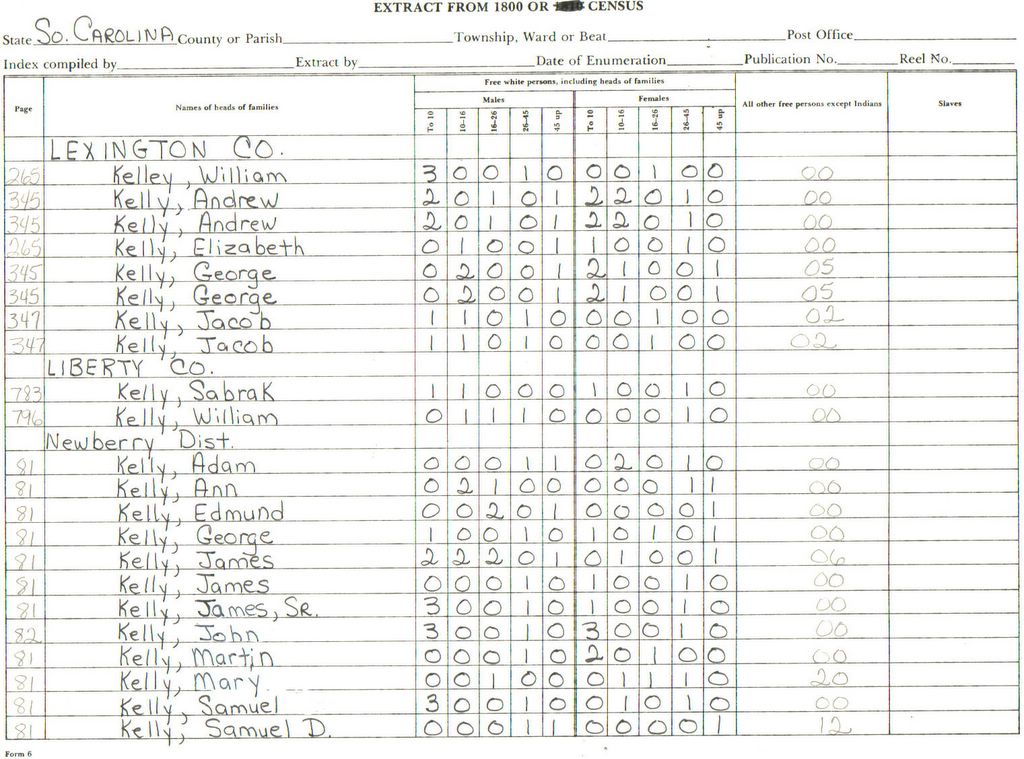 EXTRACT FROM 1800 OR CENSUS
State So. CAROLINA County or Parish Township, Ward or Beat Post Office
Index compiled by Extract by Date of Enumeration Publication No. Reel No.
Page Names of heads of families Free white persons, including heads of families All other free persons except Indians Slaves
Males Females
To 10 10-16 16-26 26-45 45 up To 10 10-16 16-26 26-45 45 up
LEXINGTON CO.
265 Kelley, William 3 0 0 1 0 0 0 1 0 0 00
345 Kelly, Andrew 2 0 1 0 1 2 2 0 1 0 00
345 Kelly, Andrew 2 0 1 0 1 2 2 0 1 0 00
265 Kelly, Elizabeth 0 1 0 0 1 1 0 0 1 0 00
345 Kelly, George 0 2 0 0 1 2 1 0 0 1 05
345 Kelly, George 0 2 0 0 1 2 1 0 0 1 05
347 Kelly, Jacob 1 1 0 1 0 0 0 1 0 0 02
347 Kelly, Jacob 1 1 0 1 0 0 0 1 0 0 02
LIBERTY CO.
783 Kelly, Sabrak 1 1 0 0 0 1 0 0 1 0 00
796 Kelly, William 0 1 1 1 0 0 0 0 1 0 00
Newberry Dist.
81 Kelly, Adam 0 0 0 1 1 0 2 0 1 0 00
81 Kelly, Ann 0 2 1 0 0 0 0 0 1 1 00
81 Kelly, Edmund 0 0 2 0 1 0 0 0 0 1 00
81 Kelly, George 1 0 0 1 0 1 0 1 0 1 00
81 Kelly, James 2 2 2 0 1 0 1 0 0 1 06
81 Kelly, James 0 0 0 1 0 1 0 0 1 0 00
81 Kelly, James, SR. 3 0 0 1 0 1 0 0 1 0 00
82 Kelly, John 3 0 0 1 0 3 0 0 1 0 00
81 Kelly, Martin 0 0 0 1 0 2 0 1 0 0 00
81 Kelly, Mary 0 0 1 0 0 0 1 1 1 0 20
81 Kelly, Samuel 3 0 0 1 0 0 1 0 1 0 00
81 Kelly, Samuel D. 0 0 0 1 1 0 0 0 0 1 12
Form 6